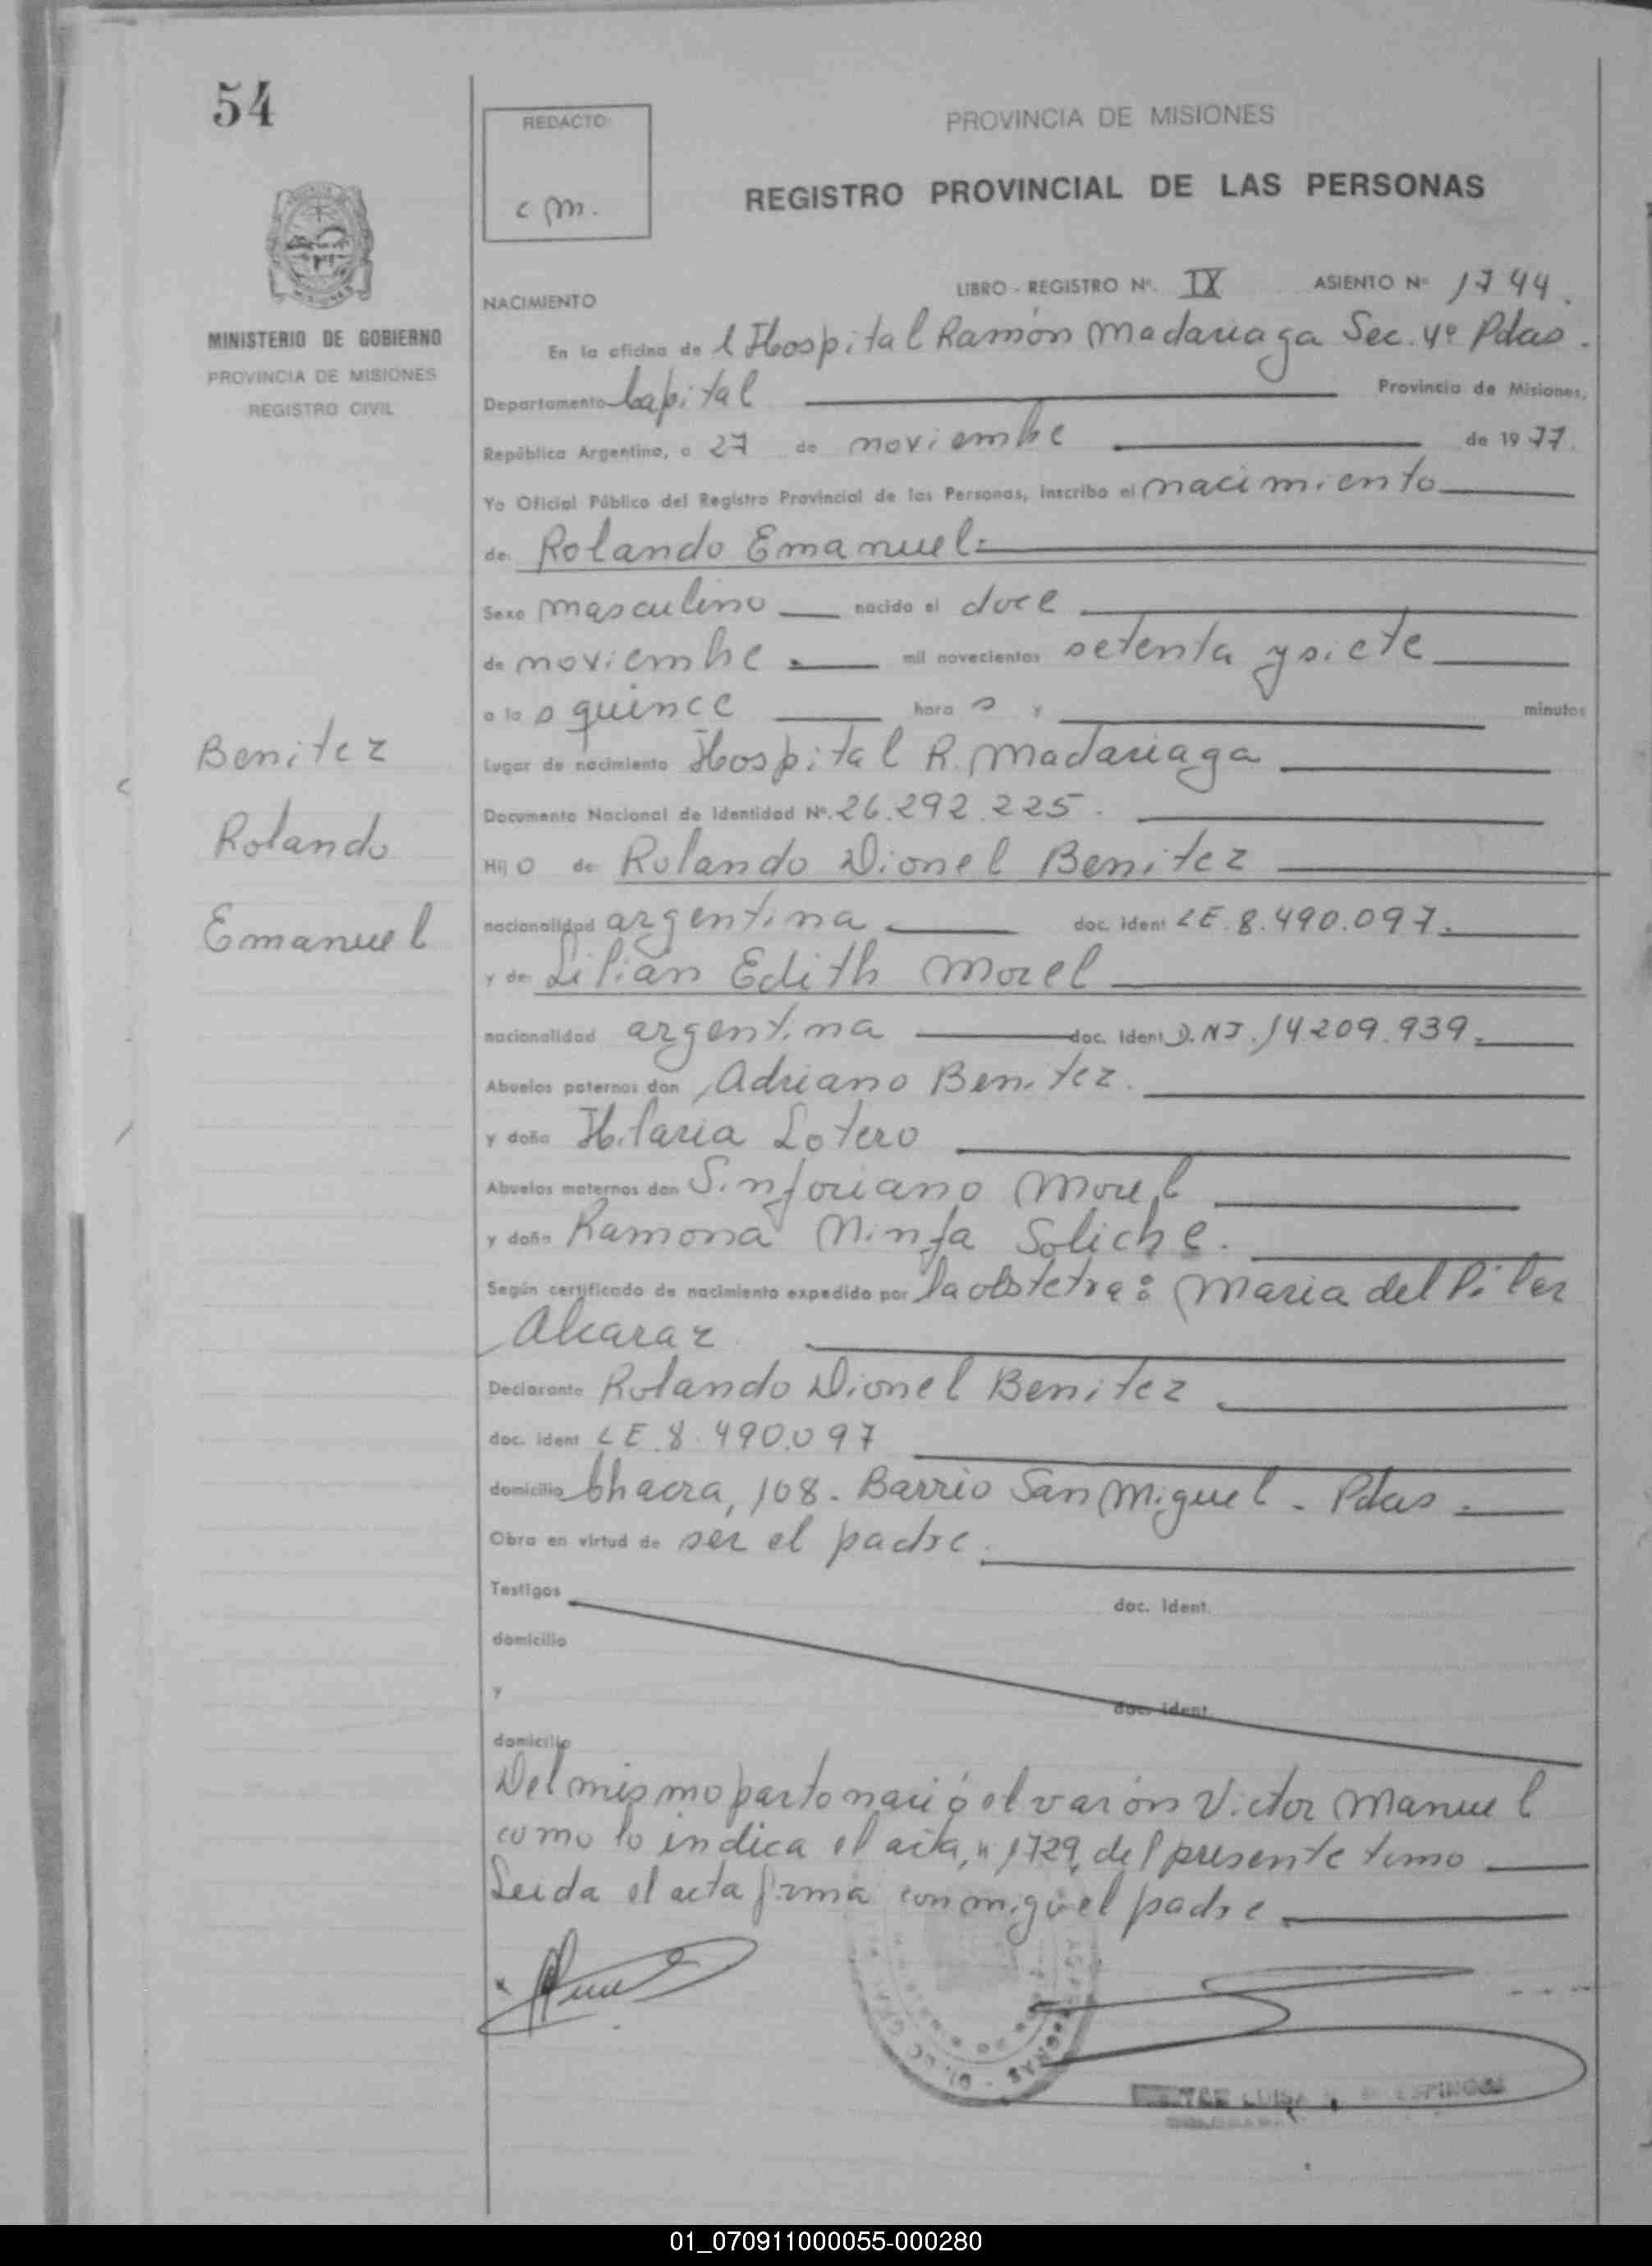 54
REDACTO:
c m.
PROVINCIA DE MISIONES
REGISTRO PROVINCIAL DE LAS PERSONAS
MINISTERIO DE GOBIERNO
PROVINCIA DE MISIONES
REGISTRO CIVIL
NACIMIENTO
LIBRO - REGISTRO Nº. IX ASIENTO Nº 1744.
En la oficina de l Hospital Ramón Madariaga Sec. 4º Pdas.
Departamento Capital Provincia de Misiones,
República Argentina, a 27 de noviembre de 1977.
Yo Oficial Público del Registro Provincial de las Personas, inscribo el nacimiento
de: Rolando Emanuel.
Sexo masculino nacido el doce
de noviembre mil novecientos setenta y siete
a la s quince hora s y minutos
Lugar de nacimiento Hospital R. Madariaga
Documento Nacional de Identidad Nº. 26.292.225.
Benitez
Rolando
Emanuel
Hij o de Rolando Dionel Benitez
nacionalidad argentina doc. ident LE. 8.490.097.
y de Lilian Edith Morel
nacionalidad argentina doc. ident D.NI. 14.209.939.
Abuelos paternos don Adriano Benitez.
y doña Hilaria Sotero
Abuelos maternos don Sinforiano Morel
y doña Ramona Ninfa Soliche.
Según certificado de nacimiento expedido por la obstetra: Maria del Pilar
Alcaraz
Declarante Rolando Dionel Benitez
doc. ident LE. 8.490.097
domicilio Chacra, 108. Barrio San Miguel - Pdas.
Obra en virtud de ser el padre.
Testigos doc. Ident.
domicilio
y doc. ident.
domicilio
Del mismo parto nació el varón Victor Manuel
como lo indica el acta, n 1729, del presente tomo
Leida el acta firma conmigo el padre
LUISA ESPINOSA
01_070911000055-000280